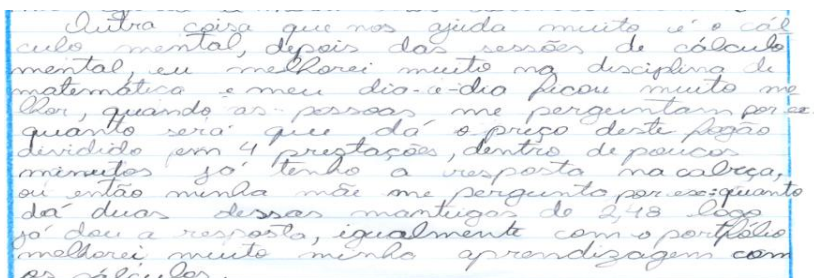 Outra coisa que nos ajuda muito é o cál
culo mental, depois das sessões de cálculo
mental, eu melhorei muito na disciplina de
matemática e meu dia-a-dia ficou muito me
lhor, quando as pessoas me perguntam por ex
quanto será que dá o preço deste fogão
dividido em 4 prestações, dentro de poucos
minutos já tenho a resposta na cabeça,
ou então minha mãe me pergunta por exe: quanto
dá duas dessas mantugas de 2,48 logo
já dou a resposta, igualmente com o portfólio
melhorei muito minha aprendizagem com
os cálculos.